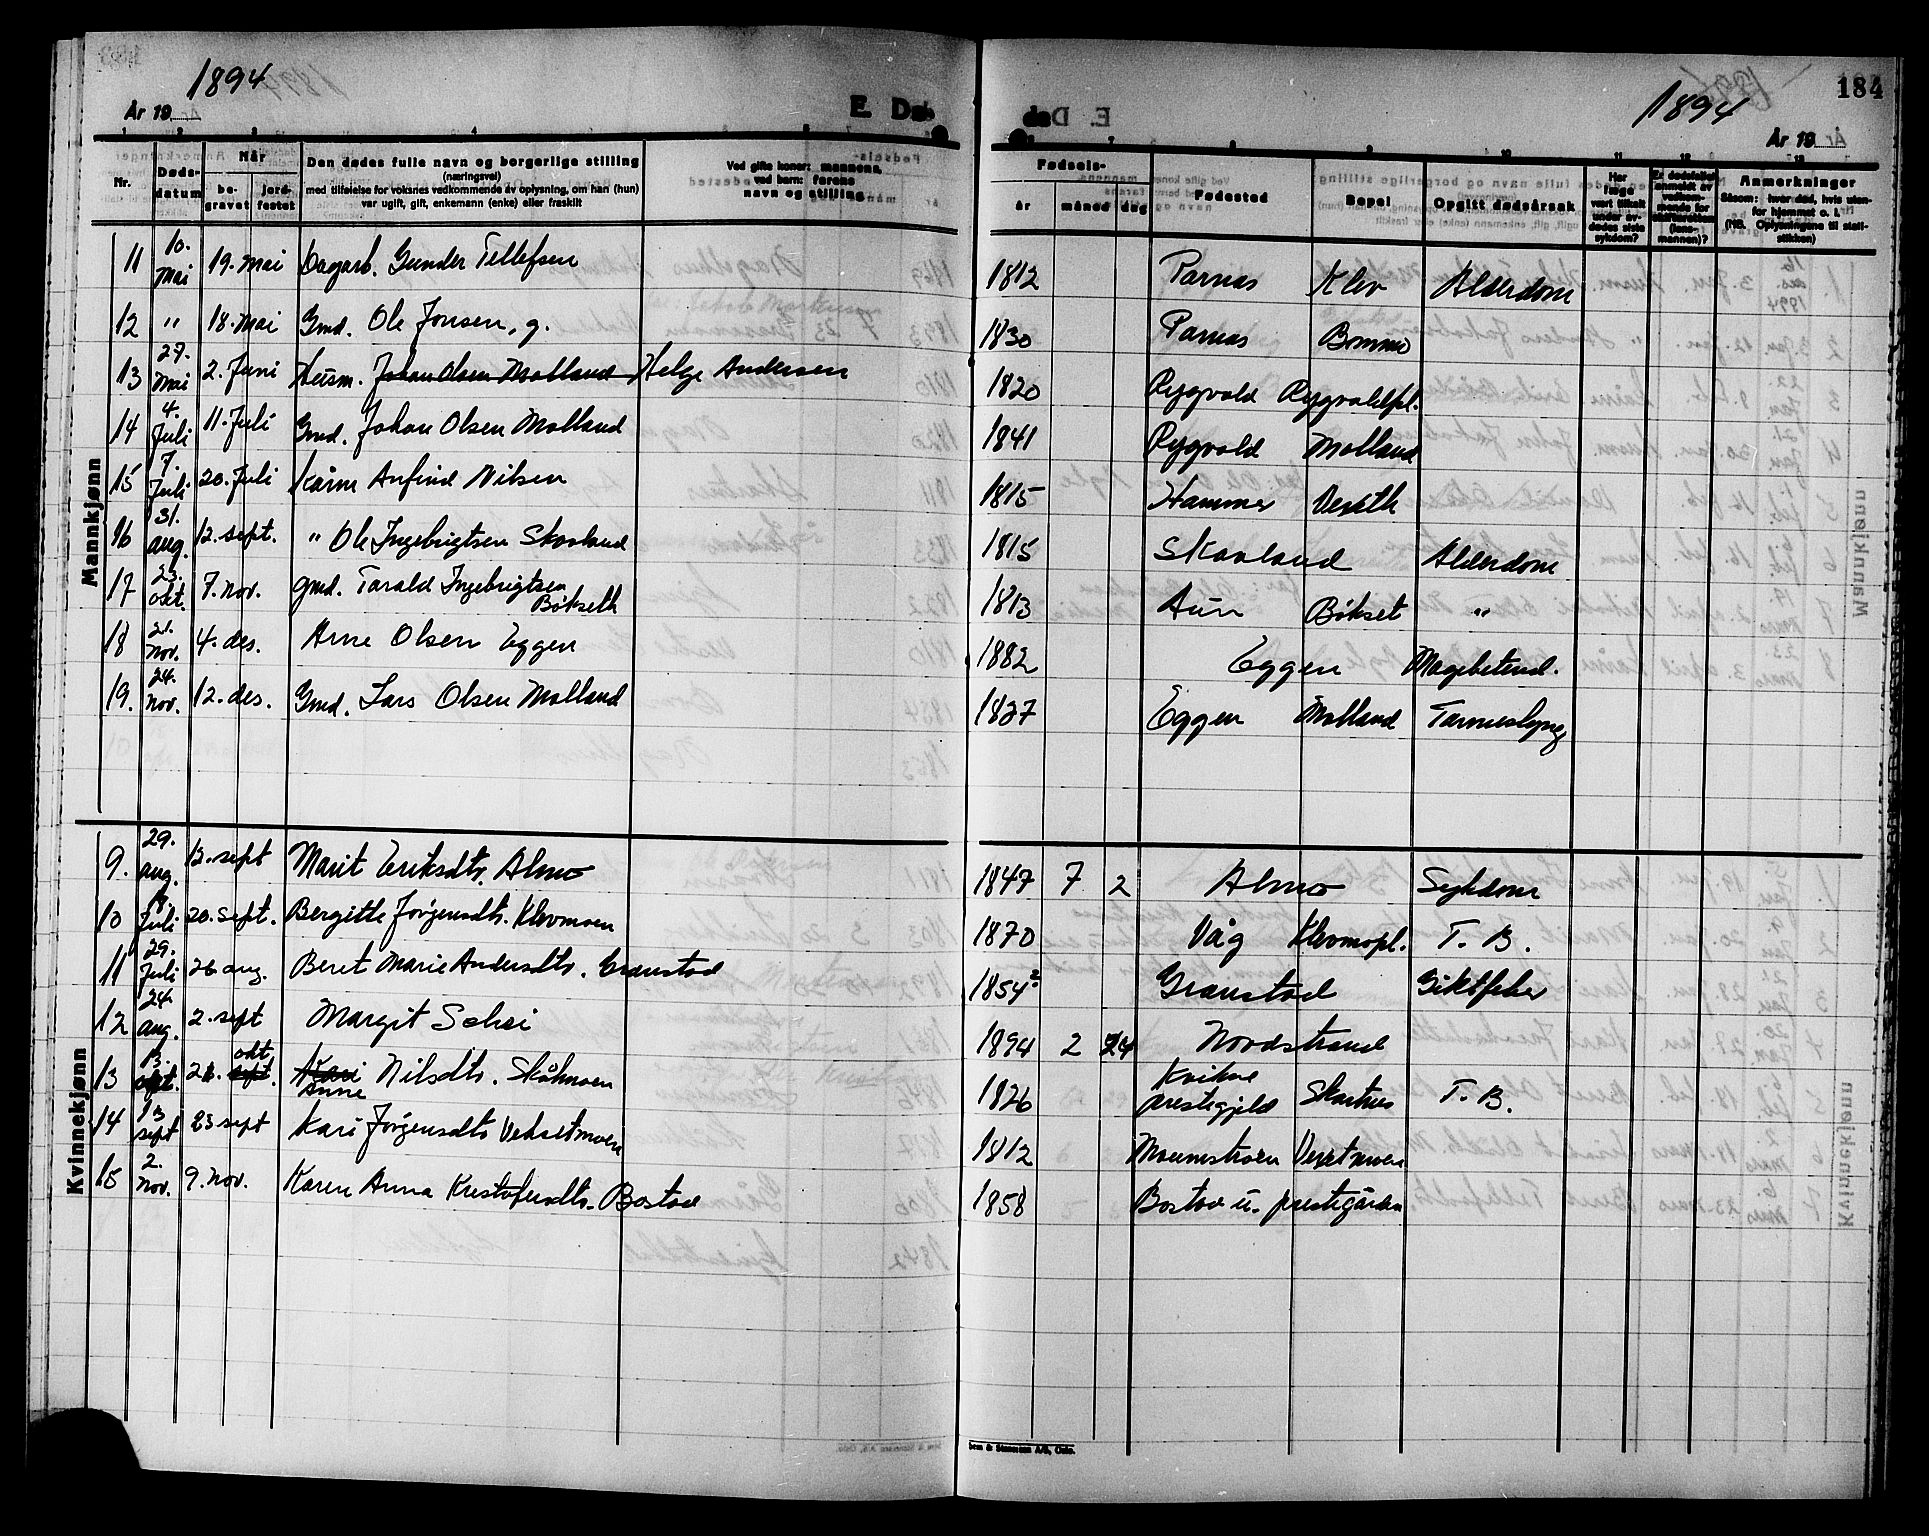 1894
År 19
E. Døde
1894
År 19
184
1 2 3 4 5
Nr. Dødsdatum Når begravet jordfestet
Den dødes fulle navn og borgerlige stilling
(næringsvei)
med tilføielse for voksnes vedkommende av oplysning, om han (hun)
var ugift, gift, enkemann (enke) eller fraskilt
Ved gifte koner: mannens,
ved barn: farens
navn og stilling
Fødsels-
år måned dag
Fødested
Bopel
Opgitt dødsårsak
Har læge vært tilkalt under avdødes siste sykdom?
Er dødsfallet anmeldt av vedkommende for skifteretten (lensmannen)?
Anmerkninger
Såsom: hvor død, hvis utenfor hjemmet o. l.
(NB. Oplysningene til statistikken)
Mannkjønn
11 10. Mai 19. Mai Dagarb. Gunder Tellefsen 1812 Parnas Klev Alderdom
12 " 18. Mai Gmd. Ole Jonsen, g. 1830 Parnas Bommo
13 27. Mai 2. Juni Husm. Johan Olsen Molland Helge Andersen 1820 Rygvold Rygvoldspl.
14 4. Juli 11. Juli Gmd. Johan Olsen Molland 1841 Rygvold Molland
15 7. Juli 20. Juli Kårm Anfind Nilsen 1815 Hammer
16 31. aug. 12. sept. " Ole Ingebrigtsen Skavland 1815 Skavland Alderdom
17 23. okt. 7. nov. Gmd. Tarald Ingebrigtsen
Bökseth 1813 Aun Bökset "
18 21. Nov. 4. des. Arne Olsen Eggen 1882 Eggen Magebetend.
19. 24. Nov. 12. des. Gmd. Lars Olsen Molland 1827 Eggen Molland Tarmeslyng
Kvinnekjønn
9. 29. aug. 13. sept Marit Eriksdtr. Almo 1847 7 2 Almo Sykdom
10 18. Juli 20. sept. Bergitte Jörgensdtr. Klevmoen 1870 Våg Klevmopl. T. B.
11 29. Juli 26 aug. Beret Marie Andersdtr. Granstad 1854 Granstad Giktfeber
12 24. aug. 2. sept Margit Selsi 1894 2 24 Nordstrand
13 13. okt. 21. sept. okt Kari Anne Nilsdtr. Skåhmoen 1826 Kvikne
prestegjeld T. B.
14 13 sept 23 sept Kari Jörgensdtr Vehsetmoen 1812
15 2. Nov. 9. Nov. Karen Anna Kristofersdtr. Bostad 1858 Bostad u. prestegården
Sem & Stenersen A/S, Oslo.